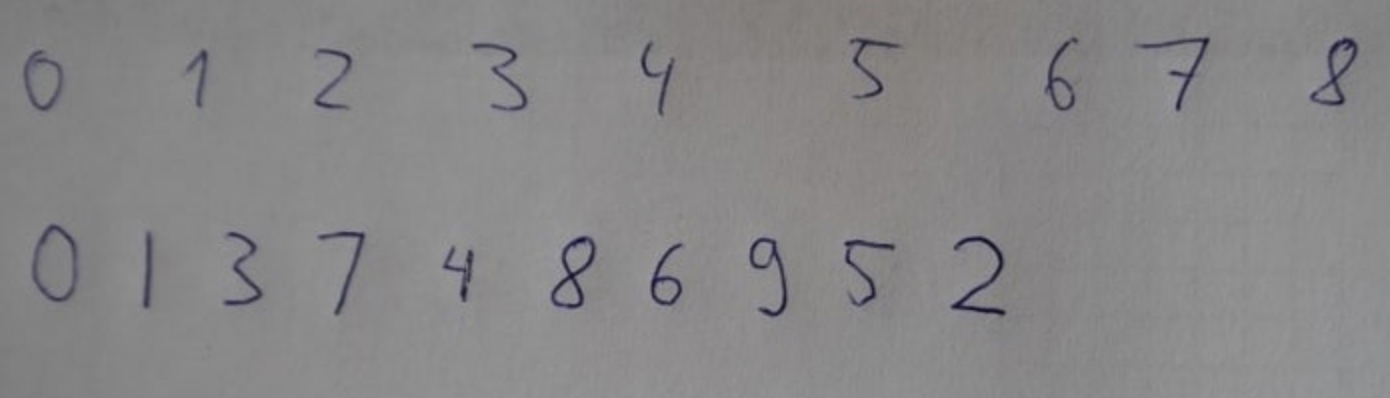 0 1 2 3 4 5 6 7 8
0 1 3 7 4 8 6 9 5 2